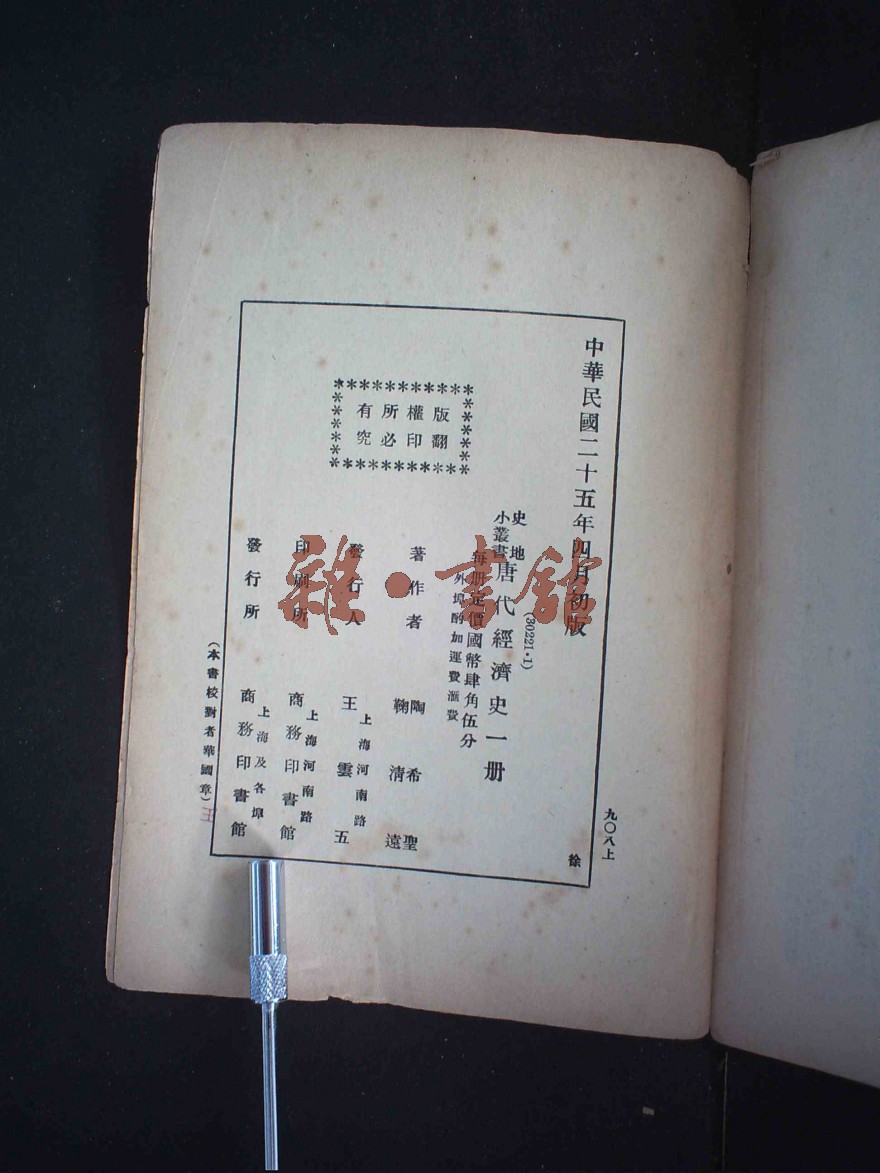 中華民國二十五年四月初版
九〇八上
徐
(30221·1)
史地
小叢書
唐代經濟史一册
每册定價國幣肆角伍分
外埠酌加運費滙費
版權所有
翻印必究
著作者
陶希聖
鞠清遠
發行人
上海河南路
王雲五
印刷所
上海河南路
商務印書館
發行所
上海及各埠
商務印書館
(本書校對者華國章)
王
雜·書館